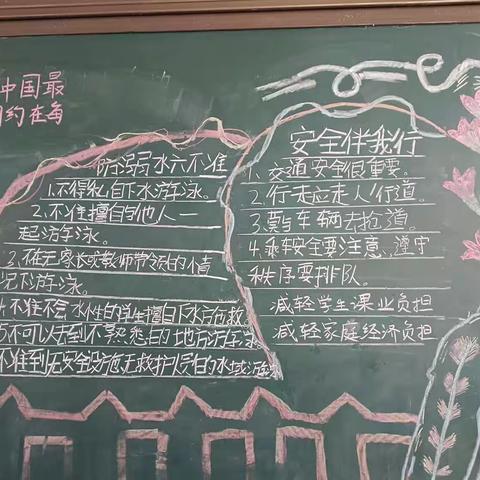 中国最
约在每
防溺弱水六不准
1.不得私自下水游泳。
2.不准擅自与他人一
起游泳。
3.在无家长或教师带领的情
况下游泳。
4.不准不会水性的学生擅自下水施救
5不可以去到不熟悉的地方游泳
不准到无安全设施无救护人员的水域游泳
安全伴我行
1、交通安全很重要。
2.行走应走人行道。
3.与车辆去抢道。
4.乘车安全要注意、遵守
秩序要排队。
减轻学生课业负担
减轻家庭经济负担